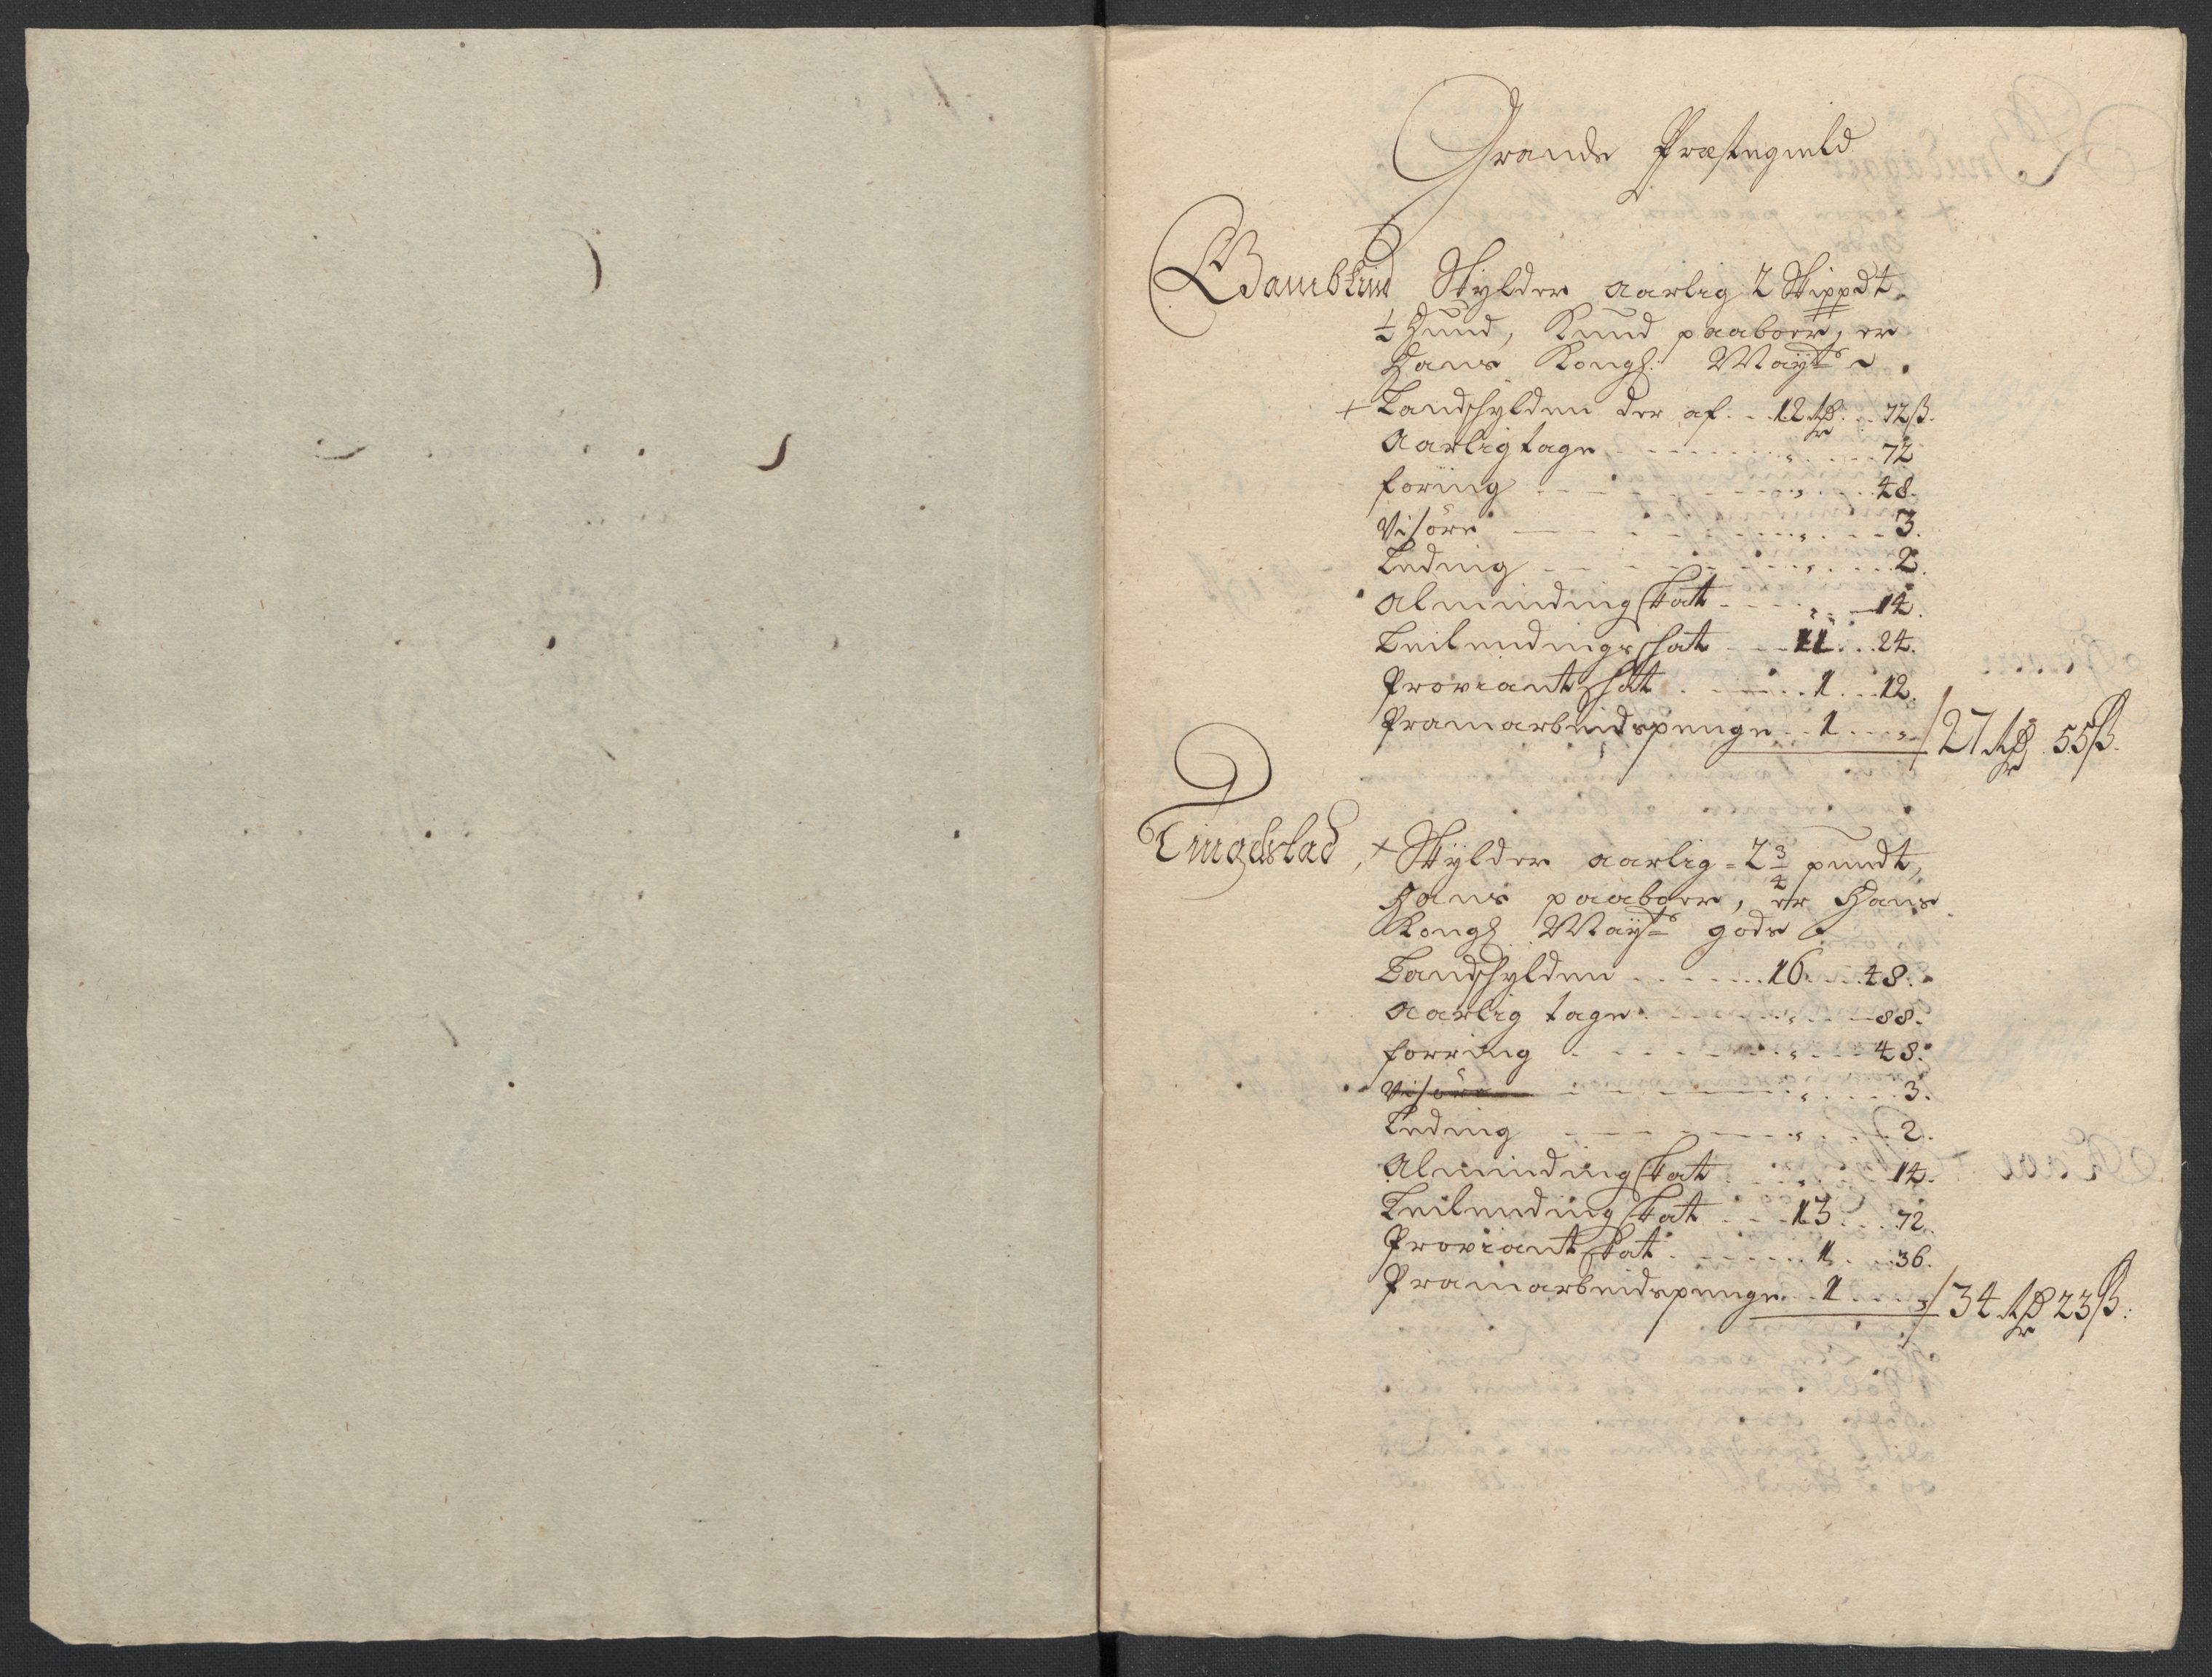 Grande Præstegield
Gamblim Skylder aarlig 2 Skippdt
½ Hund, Knud paaboer, er
Hans Kongl: Mayts ~
+ Landschylden der af . . 12 rdr . . 72 ß.
Aarlig tage - - - - „ - - - 72
foring - - - „ - - - 48.
Visöre - - - „ - - - 3.
Leding - - - „ - - - 2.
Alminding skat - - - „ - 14.
Leilendings schat - - 11 . . 24.
Proviant schat . - - 1 . . 12.
Pramarbeidspenge . . 1 . . „ / 27 rdr 55 ß.
Tingelstad, + Skÿlder aarlig = 2 3/4 pundt,
Hans paaboer, er Hans
Kongl Maÿts gods
Landschylden . . . . . 16 . . 48.
Aarlig tage . - - - „ - - 88.
forring . - - - „ - - 48.
Visöre - - - „ - - - 3.
Leding - - - „ - - - 2.
Alminding skat . - - „ - - 14.
Leilending skat - - 13 . . 72.
Proviant skat . - - - 1 . . 36.
Pramarbeidspenge . . 1 . . . „ / 34 rdr 23 ß.